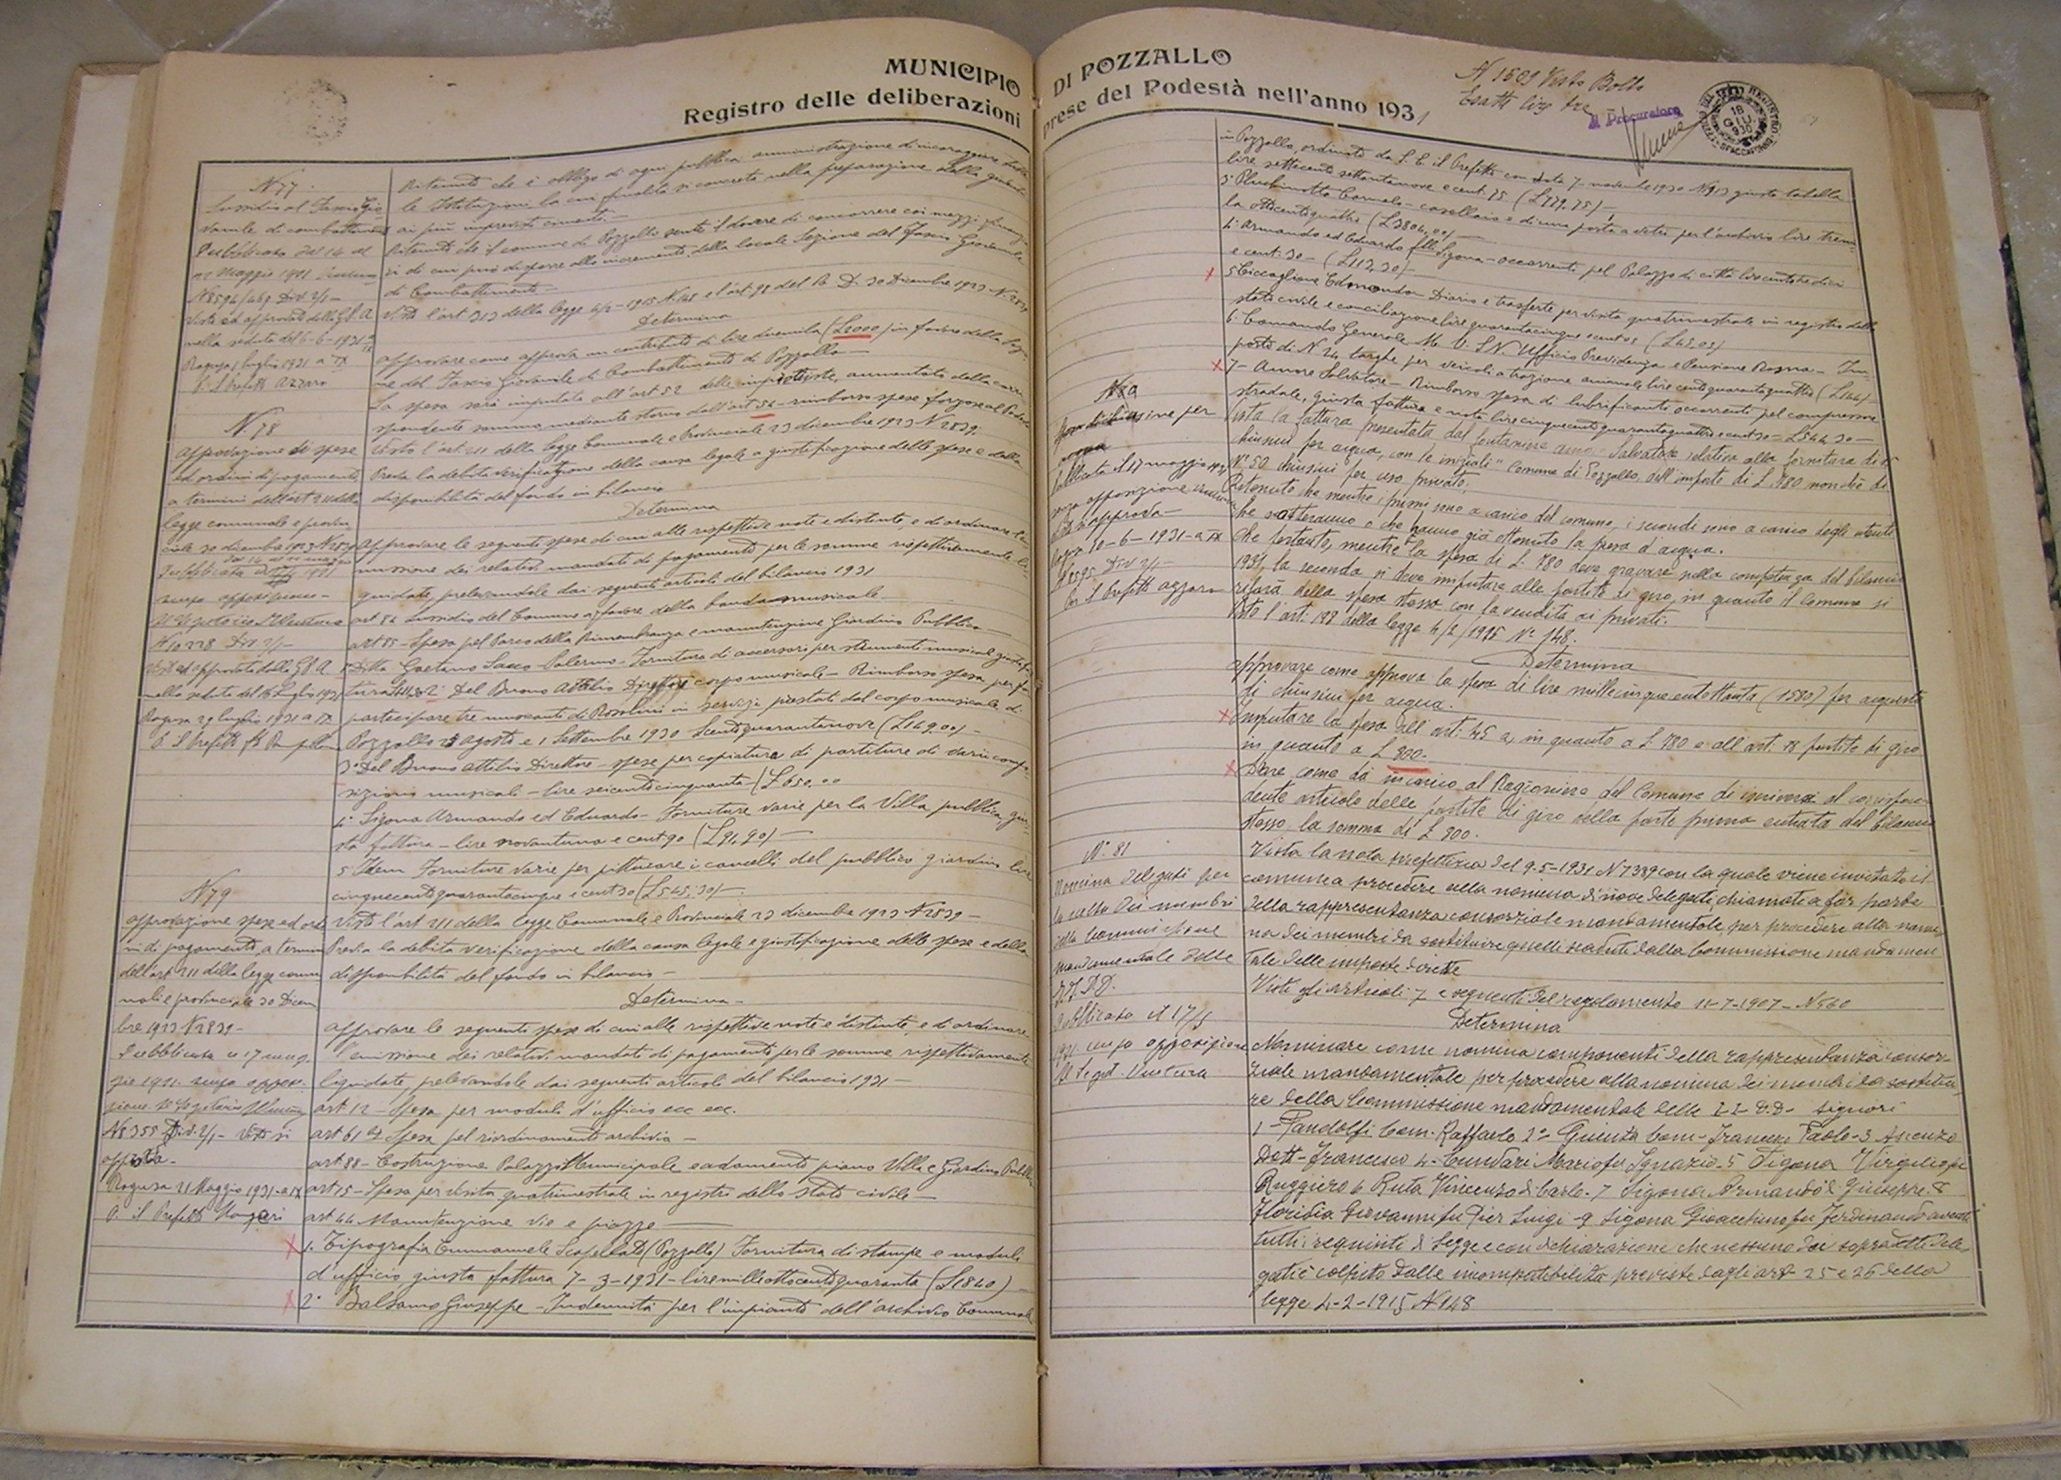 MUNICIPIO
Registro delle deliberazioni
N 77
Sussidio al Fascio Gio
vanile di combattimento
Pubblicata dal 14 al
maggio 1931
N 8594/469 Div. 2/1 -
Vista ed approvata dalla G.P.A.
nella seduta del 6-6-1931
Ragusa luglio 1931 a IX
P. Il Prefetto Azzaro
N. 78
approvazione di spese
ed ordini di pagamento
a termini dell'art 211 della
legge comunale e provin
ciale 30 dicembre 1923 N 2839
Pubblicata 1931
senza opposizione -
Il Segretario
N 10228 Div 2/1 -
Vista ed approvata dalla G.P.A.
nella seduta del luglio 1931
Ragusa 29 luglio 1931 a IX
P. Il Prefetto
N 79
approvazione spese ed ordi
ni di pagamento a termini
dell'art 211 della legge comu
nale e provinciale 30 Dicem
bre 1923 N 2839 -
Pubblicata il 17 mag
gio 1931 senza oppos
zione Il Segretario
N 8355 Div. 2/1 - Visto si
approva -
Ragusa 21 Maggio 1931 - a IX
P. Il Prefetto
Ritenuto che è obbligo di ogni pubblica amministrazione di incoraggiare
le Istituzioni la cui finalità si concreta nella preparazione della
ai più imprevisti cimenti. -
Ritenuto che il comune di Pozzallo sente il dovere di concorrere coi mezzi
di cui può disporre allo incremento della locale Sezione del Fascio Giovanile
di Combattimento -
Visto l'art. 313 della legge 4/2 - 1915 N. 148 e l'art. 92 del R. D. 30 Dicembre 1923 - N. 2839
Determina
approvare come approva un contributo di lire duemila (L 2000) in favore della Sezio
ne del Fascio Giovanile di Combattimento di Pozzallo -
La spesa sarà imputata all'art 52 delle impreviste, aumentato della corri
spondente somma mediante storno dall'art 54 - rimborso spese forzose al Podestà
Visto l'art 211 della legge Comunale e Provinciale 23 dicembre 1923 N 2839.
Previa la debita verificazione della causa legale e giustificazione delle spese e della
disponibilità del fondo in bilancio
Determina
approvare le seguenti spese di cui alle rispettive note e distinte e di ordinare l'e
missione dei relativi mandati di pagamento per le somme rispettivamente li
quidate, prelevandole dai seguenti articoli del bilancio 1931
art 84 Sussidio del Comune a favore della banda musicale -
art 85 - Spesa pel Parco della Rimembranza e manutenzione Giardino Pubblico -
1° Ditta Gaetano Salerno - Fornitura di accessori per strumenti musicali giusta fat
tura 2° Del Buono Attilio Direttore corpo musicale - Rimborso spesa per far
partecipare tre musicanti di Rosolini in servizi prestati dal corpo musicale di
Pozzallo agosto e 1 Settembre 1930 Lire centoquarantanove (L 149,00) -
3° Del Buono Attilio Direttore - spese per copiatura di partiture di varie compo
sizioni musicali - lire seicentocinquanta - (L 650.00
4° Sigona Armando ed Eduardo - Forniture varie per la Villa pubblica, giu
sta fattura - lire novantuna e cent 90 (L 91,90) -
5° Idem Forniture varie per pitturare i cancelli del pubblico giardino lire
cinquecentoquarantacinque e cent 30 (L 545,30) -
Visto l'art 211 della legge Comunale e Provinciale 23 dicembre 1923 N 2839 -
Previa la debita verificazione della causa legale e giustificazione delle spese e della
disponibilità del fondo in bilancio -
Determina -
approvare le seguenti spese di cui alle rispettive note e distinte, e di ordinare
l'emissione dei relativi mandati di pagamento per le somme rispettivamente
liquidate, prelevandole dai seguenti articoli del bilancio 1931
art 12 - Spesa per moduli d'ufficio ecc ecc.
art 61 Spesa pel riordinamento archivio -
art 88 - Costruzione Palazzo Municipale e adattamento piano Villa e Giardino Pubblico
art 15 - Spesa per visita quatrimestrale in registri dello stato civile -
art 44 Manutenzione vie e piazze -
X 1. Tipografia Emmanuele Scapellato (Pozzallo) Fornitura di stampe e moduli
d'ufficio, giusta fattura 7 - 3 - 1931 - lire milleottocentoquaranta (L 1840) -
X 2° Balsamo Giuseppe - Indennità per l'impianto dell'archivio Comunale
DI POZZALLO
prese del Podestà nell'anno 1931
N 1509 Visto Bollo
Esatte lire tre
Il Procuratore
18
GIU.
SPACCAFORNO
N 80
Spesa di chiusine per
acqua
Pubblicata il 17 maggio 1931
senza opposizione
Visto si approva -
Ragusa 10-6-1931 - a IX
N 8595 Div 2/1 -
Per Il Prefetto Azzaro
N. 81
Nomina Delegati per
la scelta dei membri
della Commissione
mandamentale delle
II. DD.
Pubblicata il 17/5
1931 senza opposizione
Il Segret. Ventura
in Pozzallo, ordinato da S. E. il Prefetto con nota 7 novembre 1930 N 913 giusta tabella
lire settecentosettantanove e cent. 75 (L 779,75) -
3° Pluchinotta Carmelo - casellario e di una porta a vetri per l'archivio lire tremi
la ottocentoquattro (L 3804,00) -
4° Armando ed Eduardo flli Sigona - occorrenti pel Palazzo di città lire centododici
e cent. 30 - (L 112,30) -
X 5 Ciccaglione Edmondo Diaria e trasferte per visita quatrimestrale in registro dello
stato civile e conciliazione lire quarantacinque e cent 03 (L 45.03)
6° Comando Generale M. V. S. N. Ufficio Previdenza e Pensione Roma - Im
porto di N 24 targhe per veicoli a trazione animale lire centoquarantaquattro (L 144) -
X 7 - Amore Salvatore - Rimborso spesa di lubrificante occorrenti pel compressore
stradale, giusta fattura e nota lire cinquecentoquarantaquattro e cent 30 - L 544.30 -
Vista la fattura presentata dal fontaniere Amore Salvatore relativa alla fornitura di
chiusini per acqua, con le iniziali "Comune di Pozzallo, dell'importo di L. 780 nonchè di
N° 50 chiusini per uso privato;
Ritenuto che mentre i primi sono a carico del comune, i secondi sono a carico degli utenti
che otterranno o che hanno già ottenuto la presa d'acqua.
Che pertanto, mentre la spesa di L. 780 deve gravare nella competenza del bilancio
1931, la seconda si deve imputare alle partite di giro, in quanto il Comune si
rifarà della spesa stessa con la vendita ai privati.
Visto l'art: 198 della legge 4/2/1915 N° 148.
Determina
approvare come approva la spesa di lire millecinquecentottanta (1580) per acquisto
di chiusini per acqua.
X Imputare la spesa all'art: 45 a, in quanto a L. 780 e all'art. 78 partite di giro
in quanto a L 800.
X Dare come dà incarico al Ragioniere del Comune di iscrivere al corrispon
dente articolo delle partite di giro della parte prima entrata del bilancio
stesso, la somma di L 800.
Vista la nota prefettizia del 9-5-1931 N 7389 con la quale viene invitato il
comune a procedere alla nomina di nove delegati chiamati a far parte
della rappresentanza consorziale mandamentale per procedere alla nomi
na dei membri da sostituire quelli scaduti dalla Commissione mandamen
tale delle imposte dirette
Visti gli articoli 7 e seguenti del regolamento 11-7-1907 - N 560
Determina
Nominare come nomina componenti della rappresentanza consor
ziale mandamentale per procedere alla nomina dei membri da sostitui
re della Commissione mandamentale delle II. D.D. - signori
1 - Pandolfi Com. Raffaele 2° - Giunta Com - Francesco Paolo - 3 Ascenzo
Dott - Francesco 4 - Cundari Mario fu Ignazio - 5 Sigona Virgilio fu
Ruggiero 6 Ruta Vincenzo di Carlo - 7 Sigona Armando di Giuseppe - 8
Floridia Giovanni fu Pier Luigi - 9 Sigona Gioacchino fu Ferdinando aventi
tutti i requisiti di legge e con dichiarazione che nessuno dei sopradetti dele
gati è colpito dalle incompatibilità previste dagli art. 25 e 26 della
legge 4-2-1915 N 148